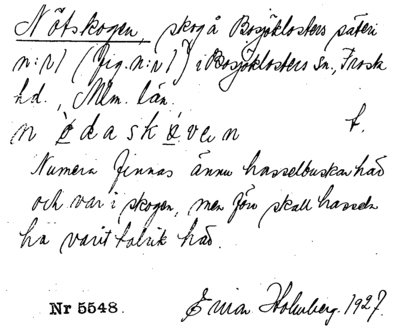 Nötskogen, skog å Bosjöklosters säteri
n:r 1 (fig. n:r 1) i Bosjöklosters sn., Frosta
hd., Mlm. län.
nödaskoven t.
Numera finnas ännu hasselbuskar här
och var i skogen, men förr skall hasseln
ha varit talrik här.
Nr 5548. Einar Holmberg. 1927.